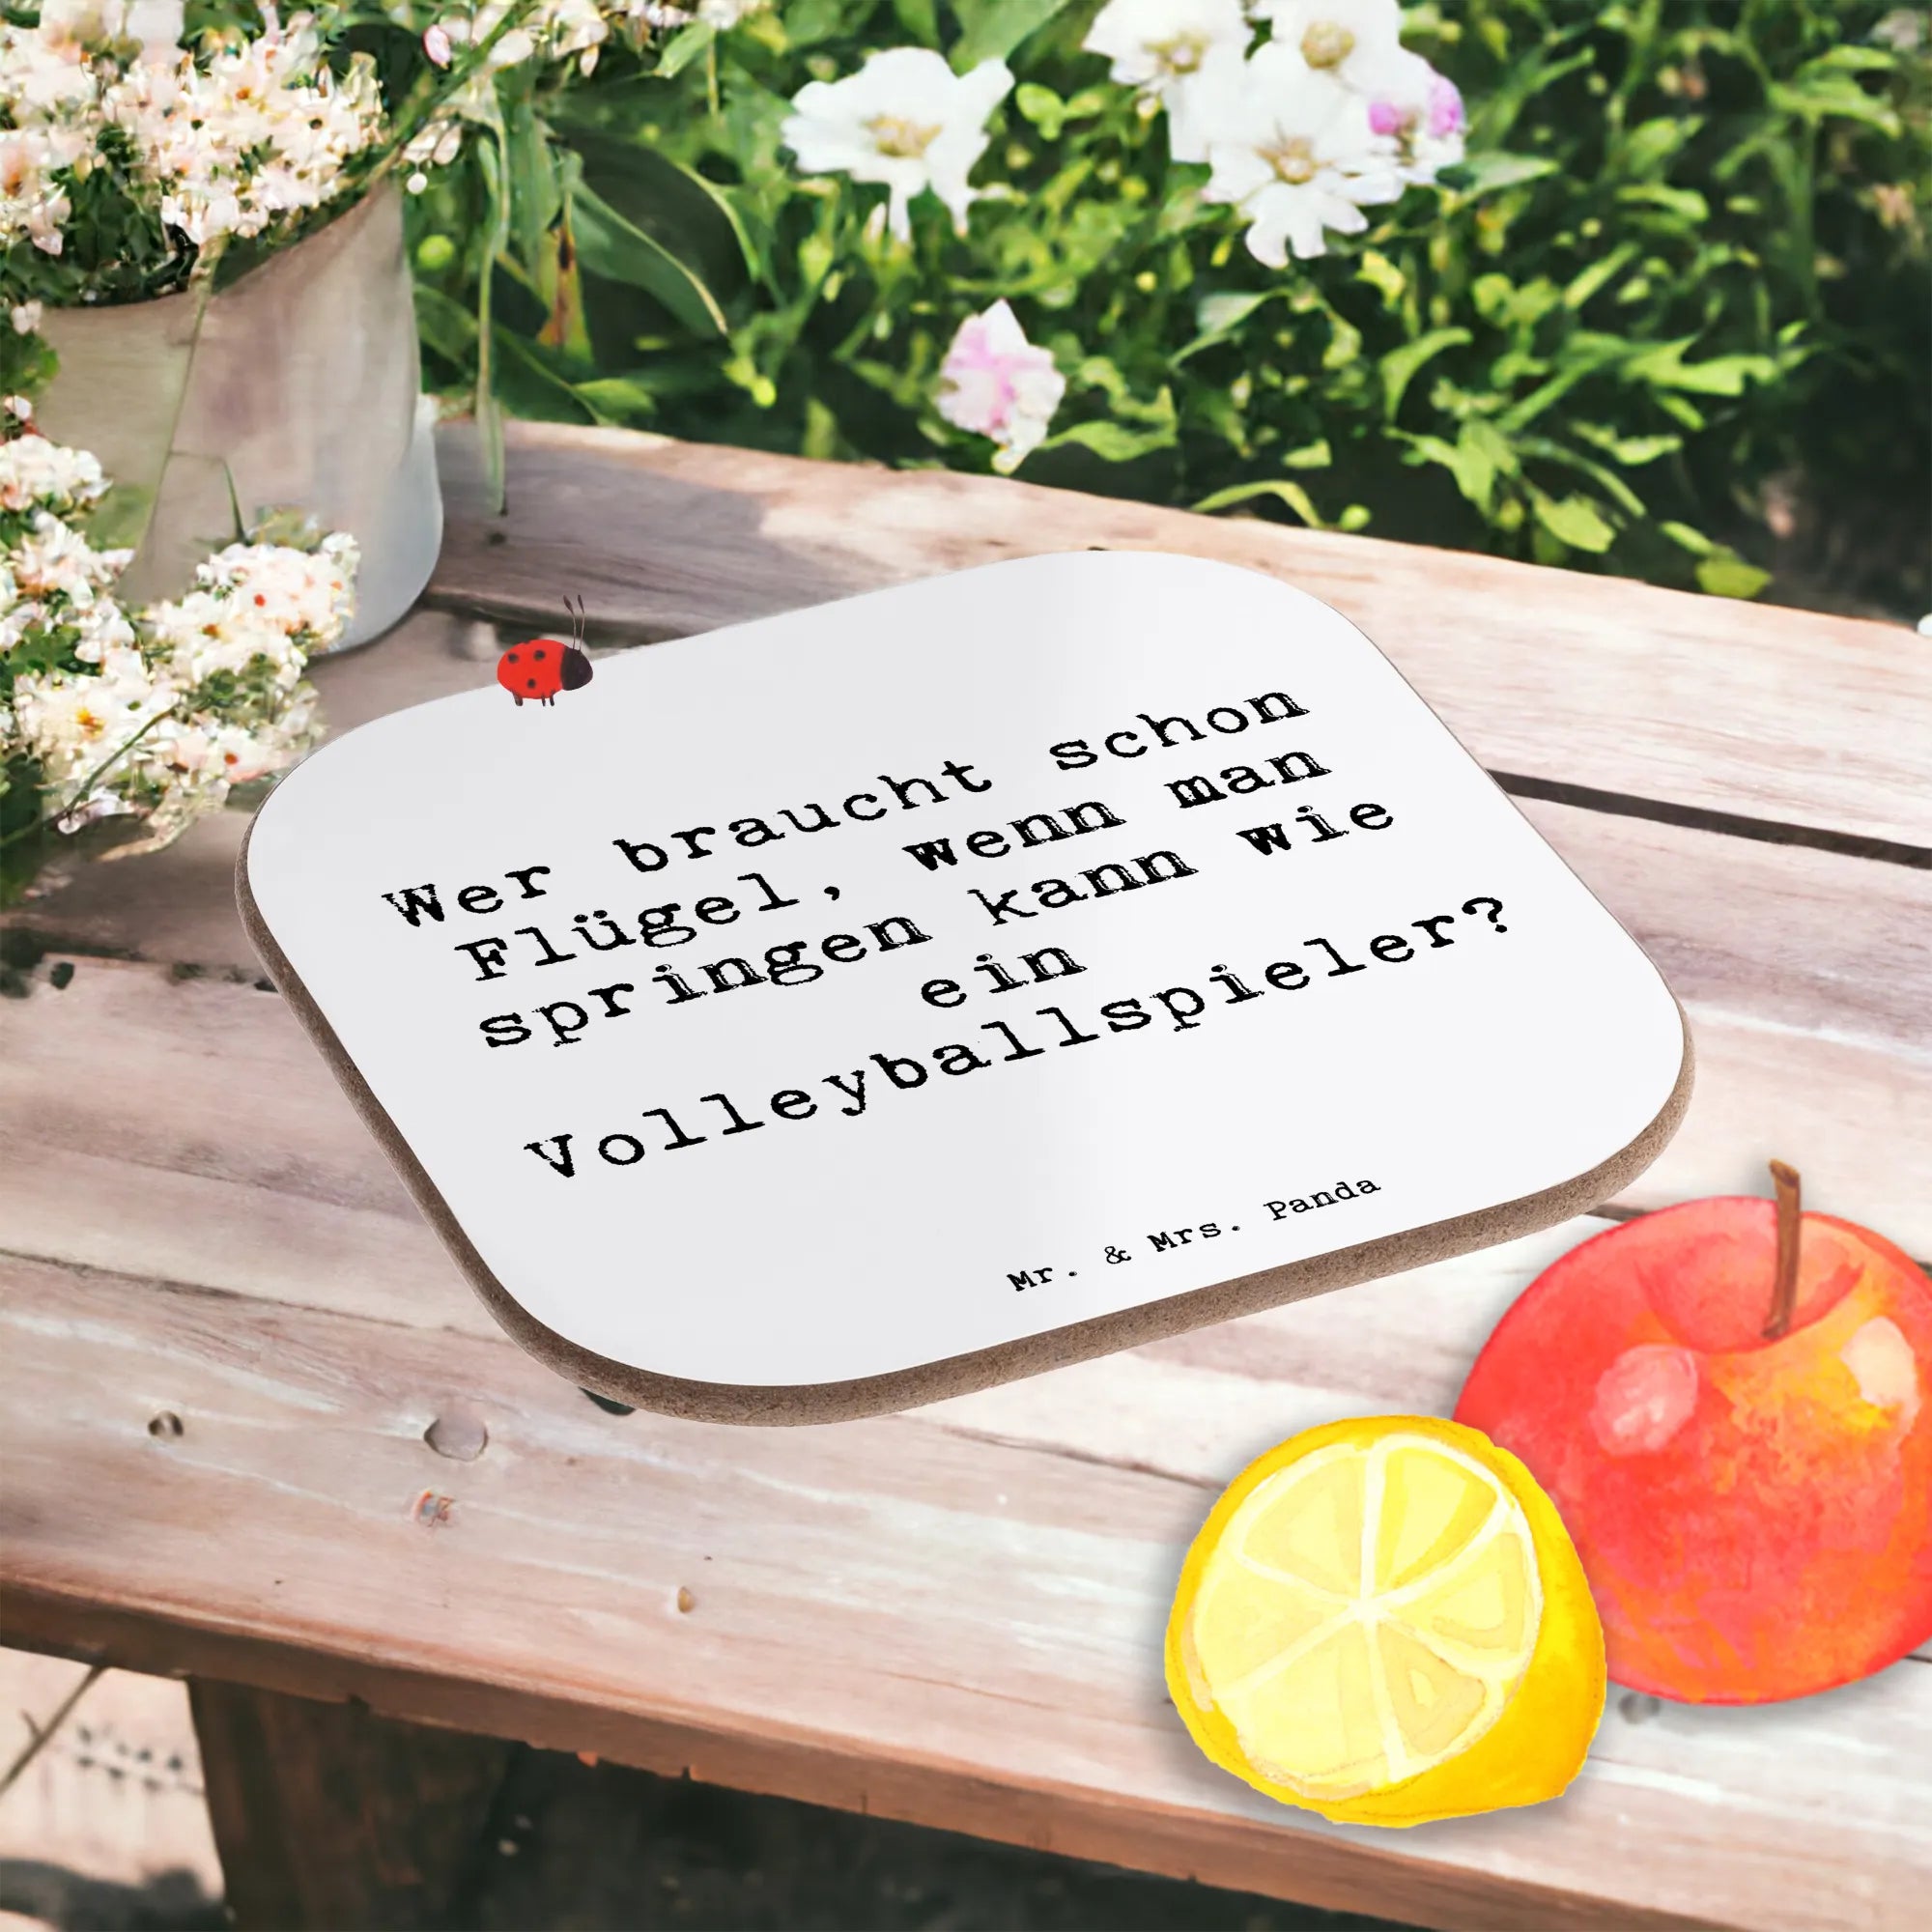 Wer braucht schon
Flügel, wenn man
springen kann wie
ein
Volleyballspieler?
Mr. & Mrs. Panda